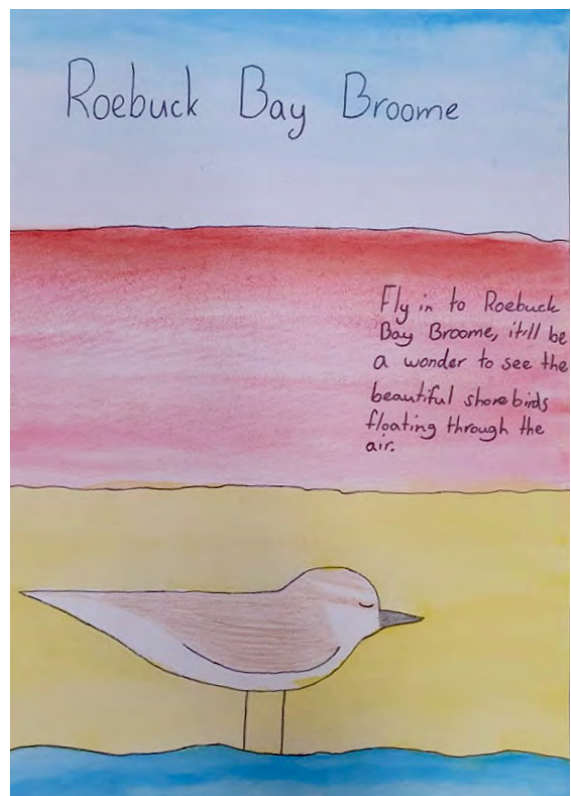 Roebuck Bay Broome
Fly in to Roebuck
Bay Broome, it'll be
a wonder to see the
beautiful shorebirds
floating through the
air.